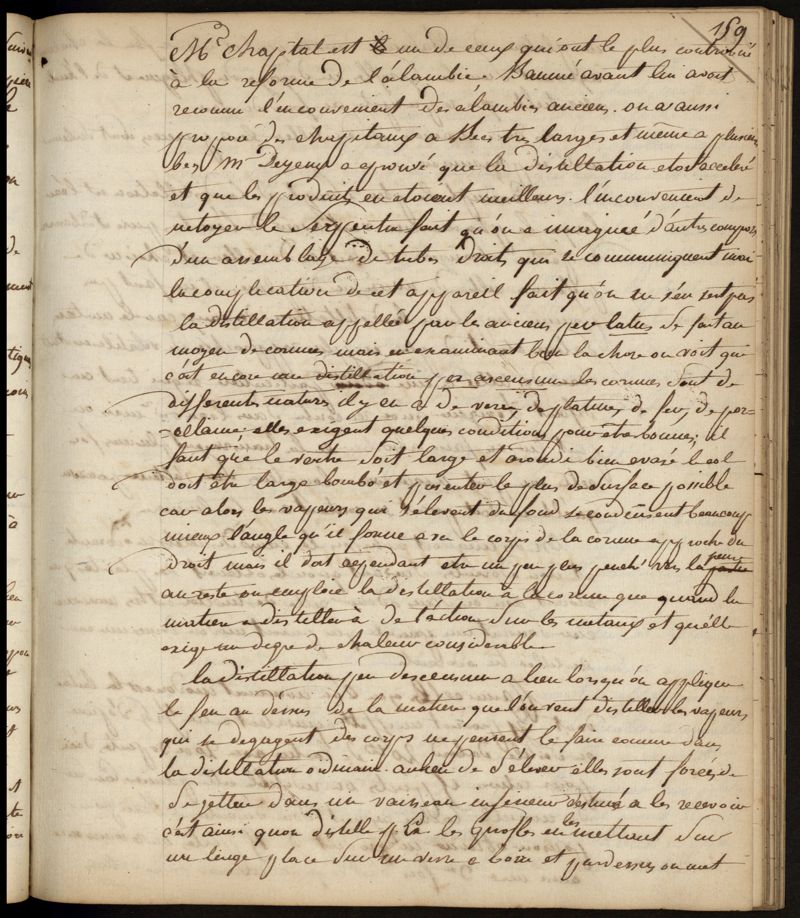 159
Mr chaptal est un de ceux qui ont le plus contribué
à la reforme de l'alambic. Baumé avant lui avoit
reconnu l'inconvenient des alambics anciens. on a aussi
proposé des chapitaux a Becs tres larges et même a plusieurs
bes Mr Deyeux a eprouvé que la distillation etoit acceleré
et que les produits en etoient meilleurs. l'inconvenient de
netoyer le Serpentin fait qu'on a imaginé d'autres composés
d'un assemblage de tubes droits qui se communiquent mais
la complication de cet appareil fait qu'on ne s'en sert pas
la distillation appellée par les anciens per latus se fait au
moyen de cornues mais en examinant bien la chose on voit que
c'est encore une distillation per ascensum les cornues sont de
differentes natures il y en a de verre, de platine, de fer, de por-
-celaine elles exigent quelques conditions pour être bonnes; il
faut que le ventre soit large et arondi bien evasé le col
doit être large bombé et presenter le plus de surface possible
car alors les vapeurs qui s'élevent du fond se condensent beaucoup
mieux l'angle qu'il forme avec le corps de la cornue approche du
droit mais il doit cependant etre un peu plus penché vers la
au reste on emploie la distillation à la cornue que quand la
matiere a distiller à de l'action sur les metaux et qu'elle
exige un degre de chaleur considerable.
la distillation per descensum a lieu lorsqu'on applique
le feu au dessus de la matiere que l'on veut distiller les vapeurs
qui se degagent des corps ne peuvent le faire comme dans
la distillation ordinaire. au lieu de s'élever elles sont forcés de
se jetter dans un vaisseau inferieur destiné a les recevoir
c'est ainsi qu'on distille les girofles en les mettant sur
un linge placé sur un verre a boire et par dessus on met